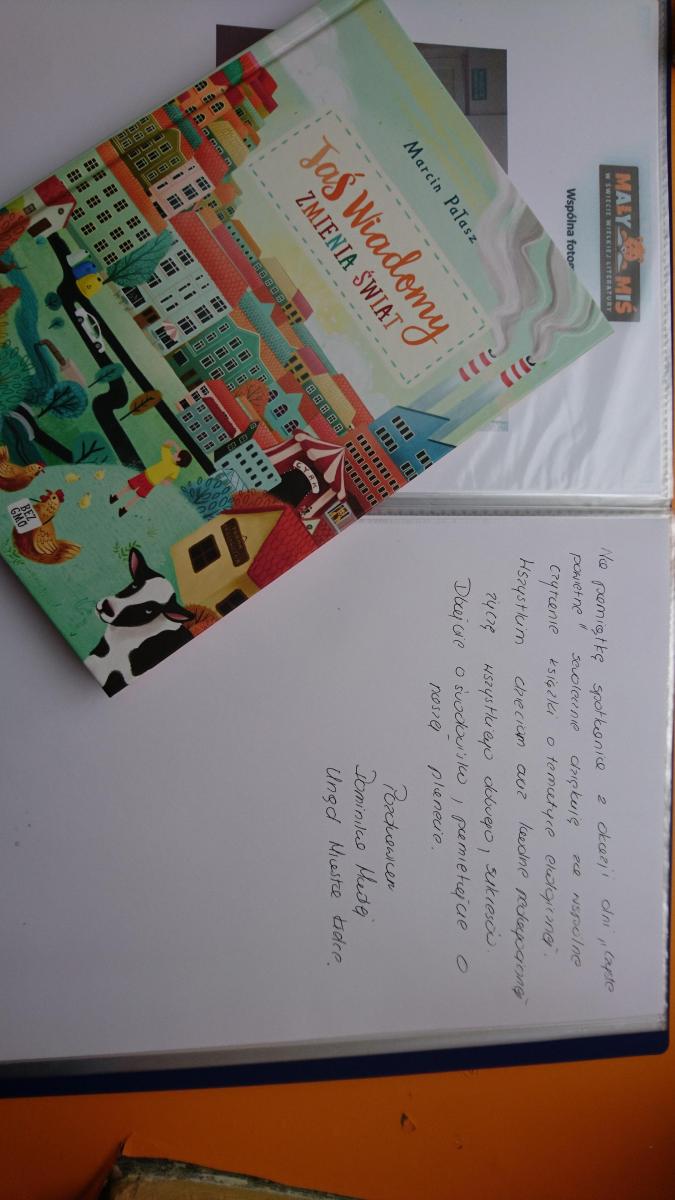 Marcin Pałasz
Jaś Wiadomy
ZMIENIA ŚWIAT
CYRK
BEZ
GMO
MAŁY MIŚ
W ŚWIECIE WIELKIEJ LITERATURY
Wspólna fotog
Na pamiątkę spotkania z okazji dni "Czyste
powietrze" serdecznie dziękuję za wspólne
czytanie książki o tematyce ekologicznej.
Wszystkim dzieciom oraz kadrze pedagogicznej
życzę wszystkiego dobrego, sukcesów.
Dbajcie o środowisko, pamiętajcie o
naszej planecie.
Pozdrawiam
Dominika
Urząd Miasta